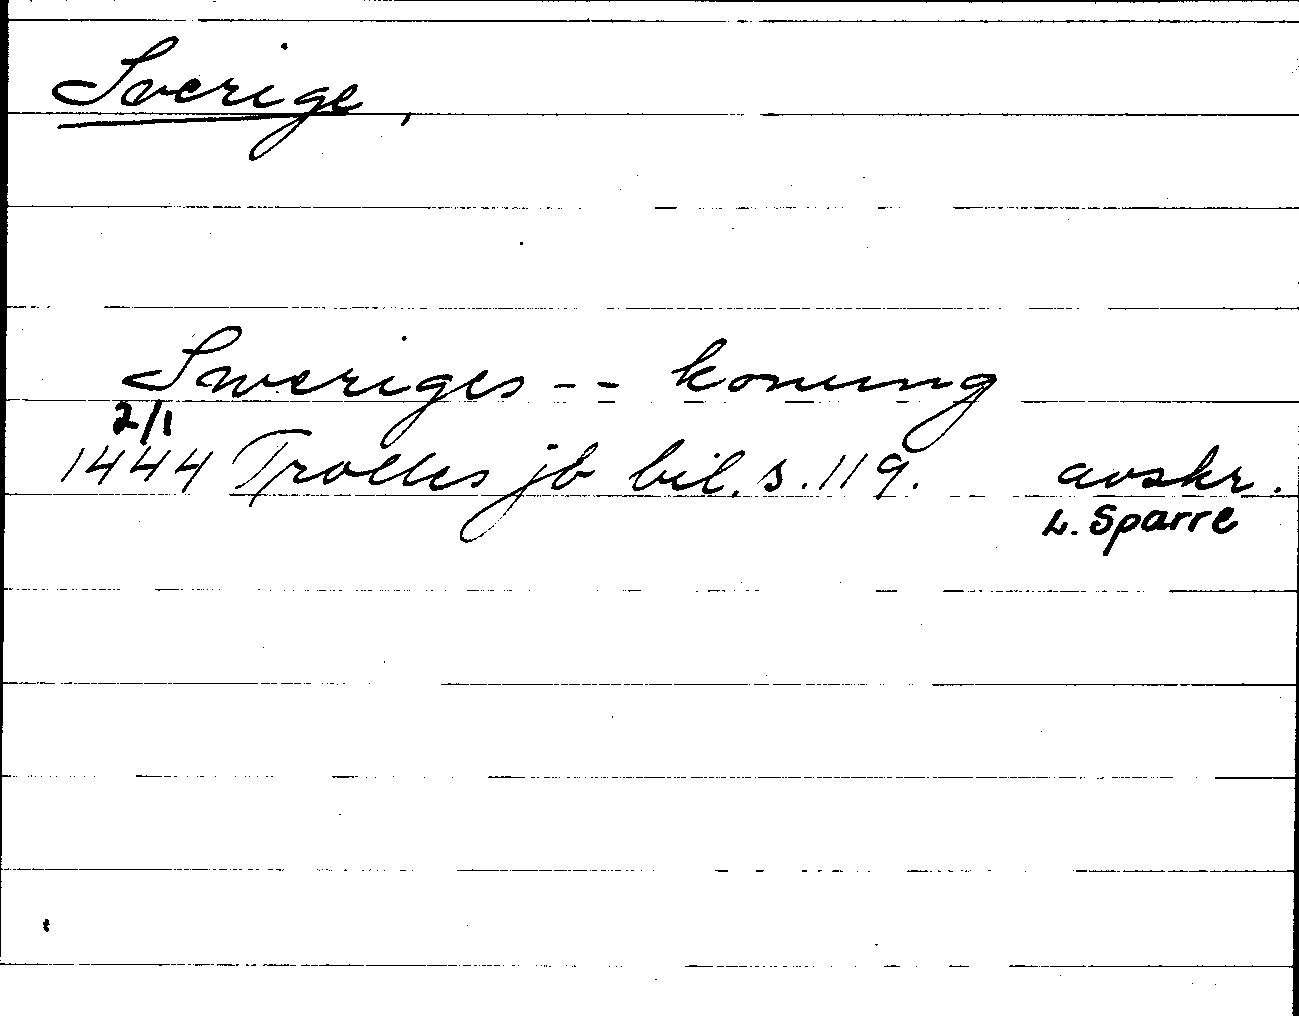 Sverige,
Sweriges -- konung
2/1
1444 Trolles jb bil. s. 119. avskr.
L. Sparre